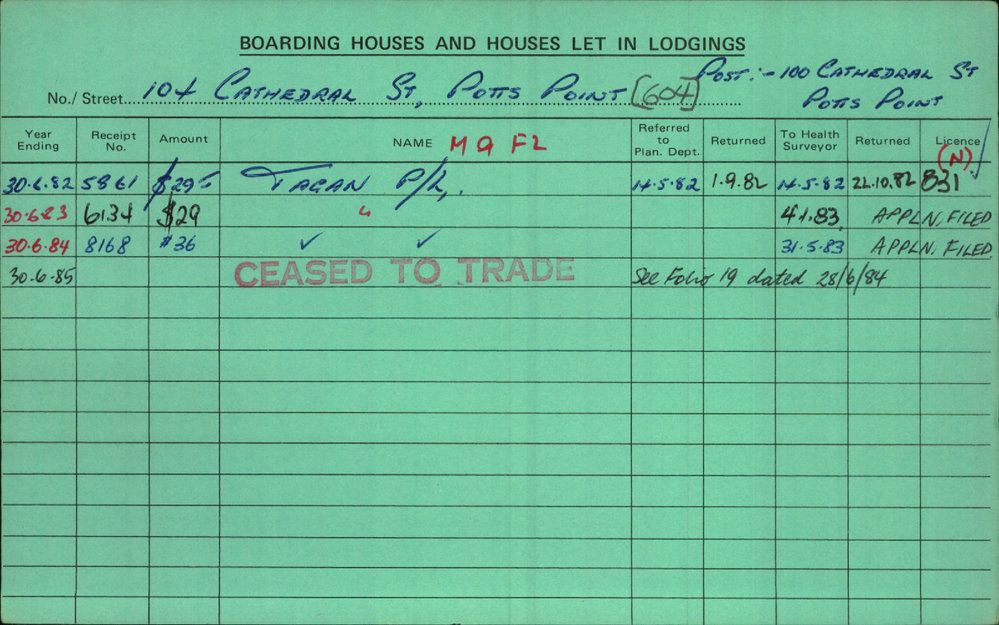 BOARDING HOUSES AND HOUSES LET IN LODGINGS
Post:- 100 CATHEDRAL ST
POTTS POINT
No./ Street 104 CATHEDRAL ST, POTTS POINT (604)
Year Ending Receipt No. Amount NAME M 9 FL Referred to Plan. Dept. Returned To Health Surveyor Returned Licence (N)
30.6.82 5861 $29 TAGAN P/L. 14.5.82 1.9.82 14.5.82 22.10.82 831
30.6.83 6134 $29 " 4.1.83 APPLN. FILED
30.6.84 8168 $36 ✓ ✓ 31.5.83 APPLN. FILED
30.6.85 CEASED TO TRADE See Folio 19 dated 28/6/84